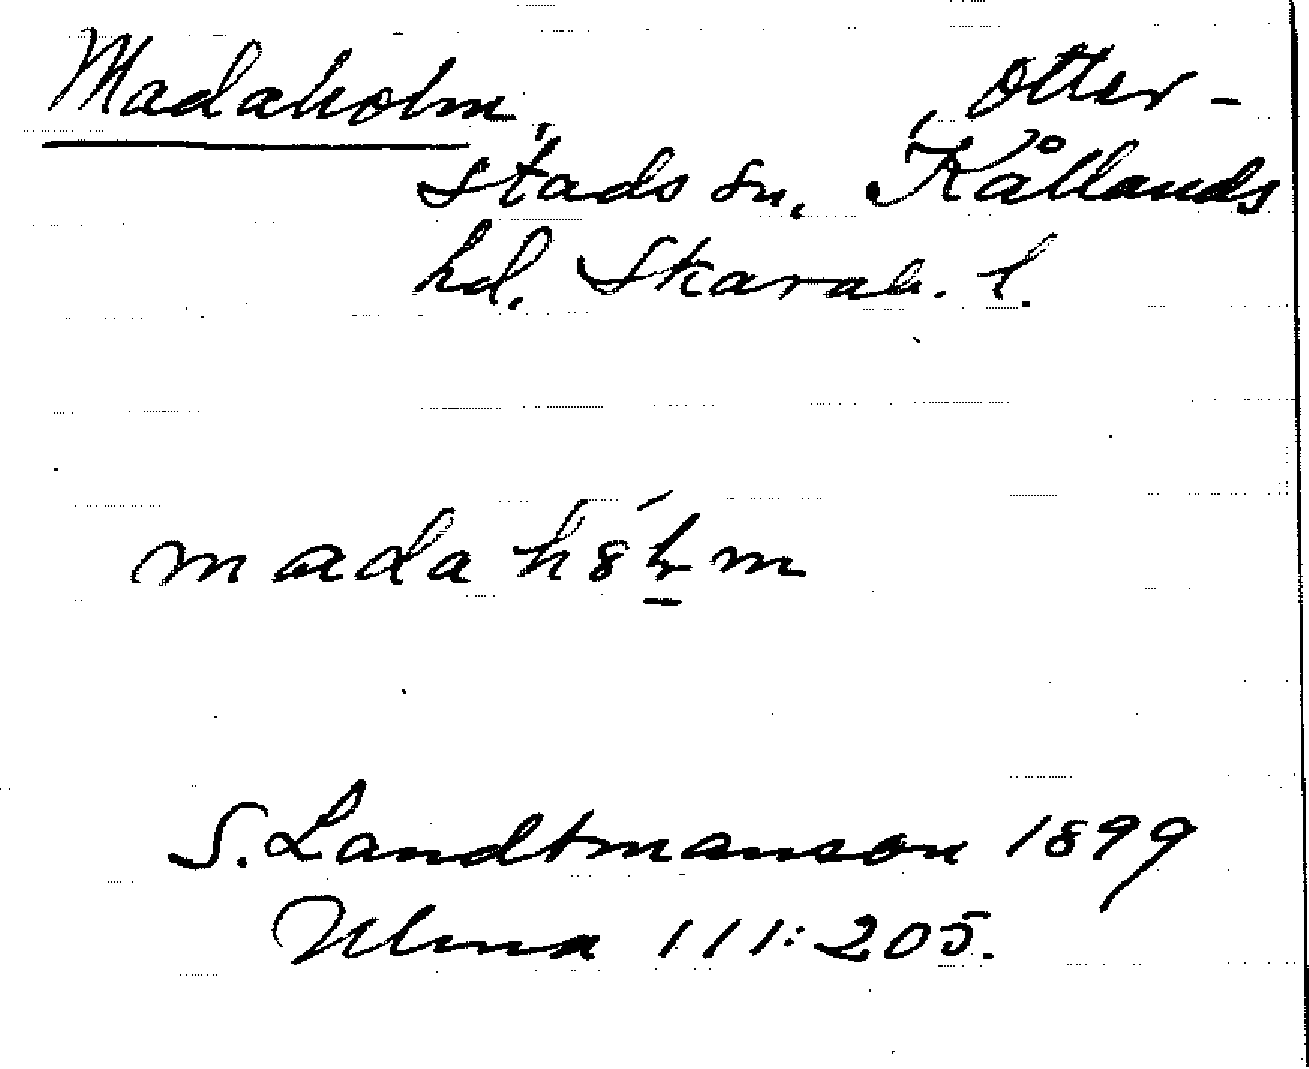 Madaholm, Otter-
stads sn, Kållands
hd. Skarab. l.
S. Landtmanson 1899
Ulma 111:205.